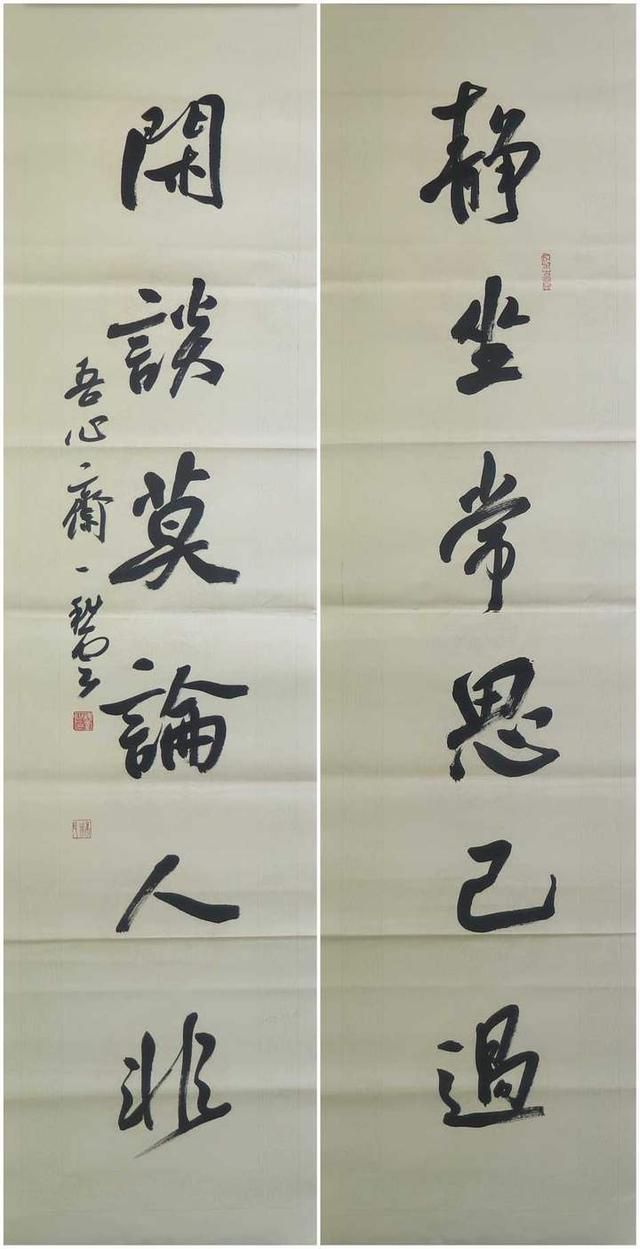 静坐常思己過
閑談莫論人非
吾心齋一